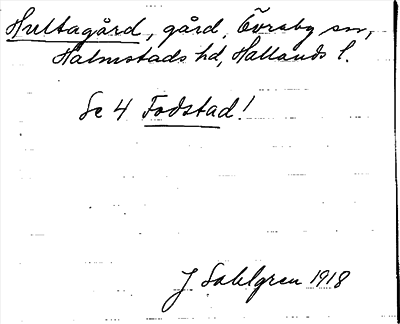 Hultagård, gård, Övraby sn,
Halmstads hd, Hallands l.
Se 4 Fodstad!
J Sahlgren 1918